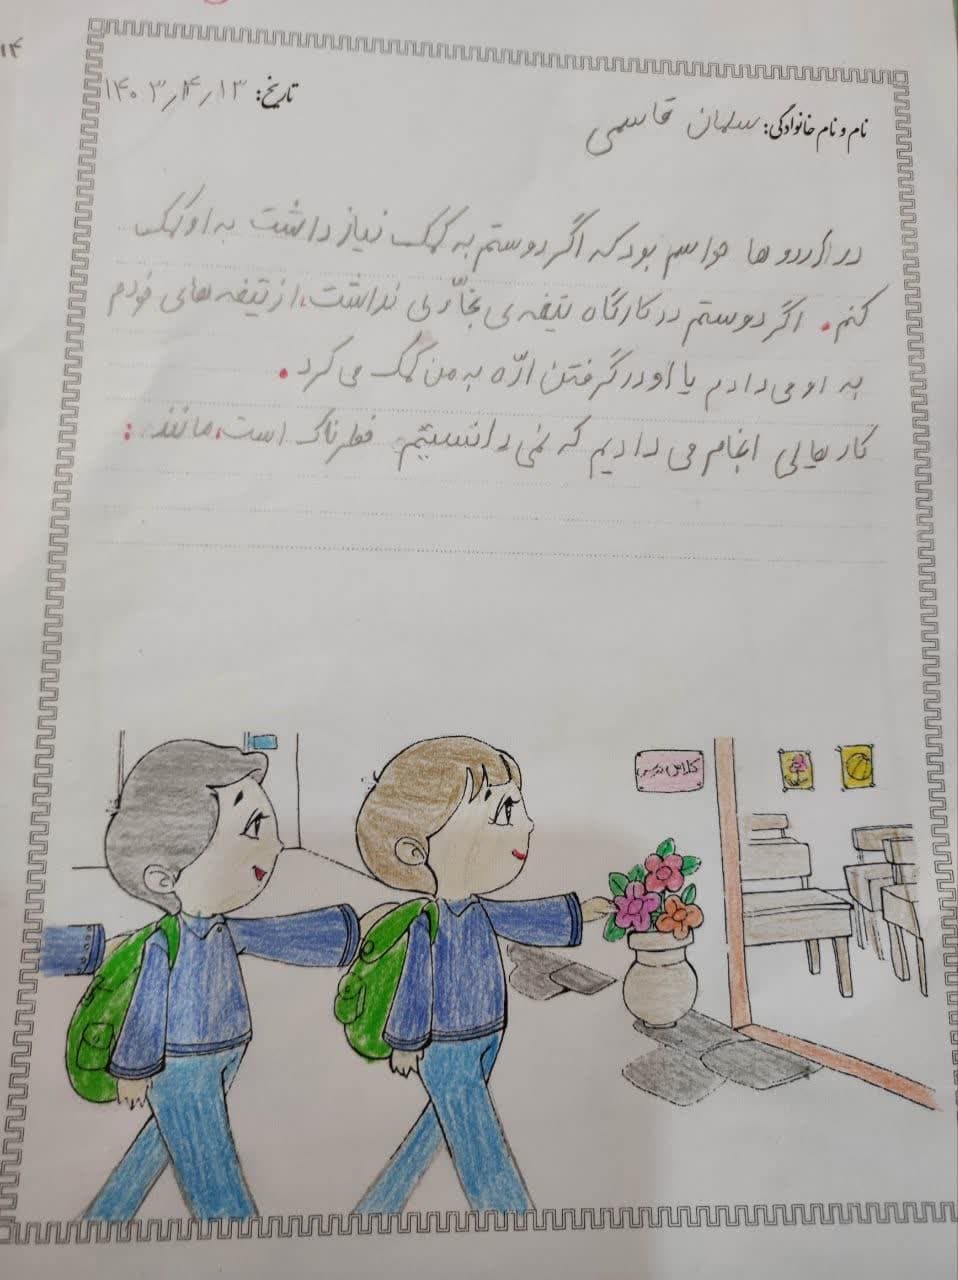 ۱۴
نام و نام خانوادگی: سلمان قاسمی
تاریخ: ۱۴۰۳٫۴٫۱۳
در اردو ها حواسم بود که اگر دوستم به کمک نیاز داشت به او کمک
کنم. اگر دوستم در کارگاه تیغه ی نجّاری نداشت، از تیغه های خودم
به او می دادم یا او در گرفتن ارّه به من کمک می کرد.
کار هایی انجام می دادیم که نمی دانستیم خطرناک است، مانند:
کلاس درس